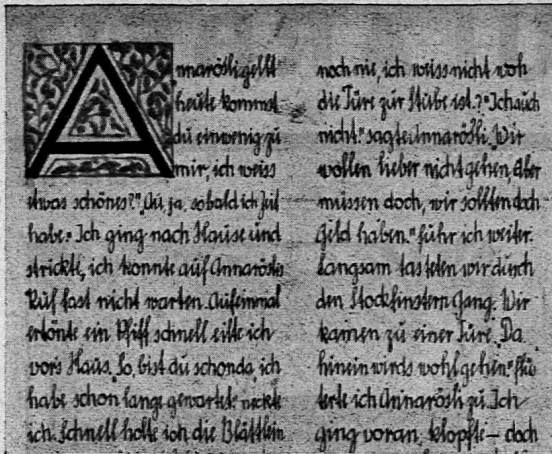 Annarösli gellt
heute kommst
du ein wenig zu
mir, ich weiss
etwas schönes?" "Au, ja, sobald ich Zeit
habe." Ich ging nach Hause und
strickte, ich konnte auf Annaröslis
Ruf fast nicht warten. Auf einmal
ertönte ein Pfiff schnell eilte ich
vors Haus. "So, bist du schon da, ich
habe schon lange gewartet." neckte
ich. Schnell holte ich die Blättlein
noch nie, ich weiss nicht woh
die Türe zur Stube ist.?" "Ich auch
nicht." sagte Annarösli. "Wir
wollen lieber nicht gehen, aber
müssen doch, wir sollten doch
Geld haben." fuhr ich weiter.
Langsam tasteten wir durch
den stockfinstern Gang. Wir
kamen zu einer Türe. "Da
hinein wirds wohl gehen." flüs
terte ich Annarösli zu. Ich
ging voran, klopfte — doch